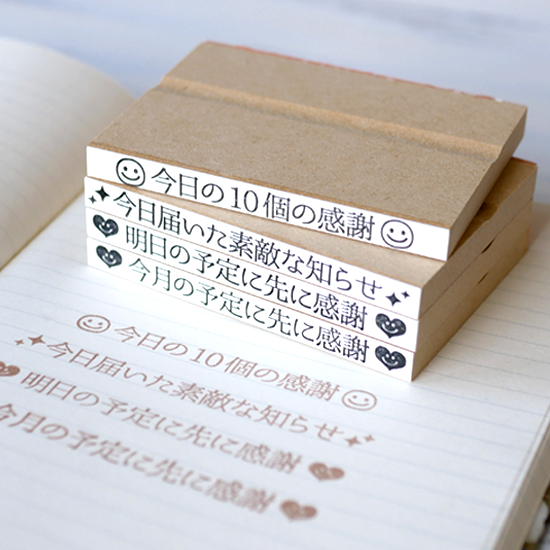 今日の10個の感謝
今日届いた素敵な知らせ
明日の予定に先に感謝
今月の予定に先に感謝
今日の10個の感謝
今日届いた素敵な知らせ
明日の予定に先に感謝
今月の予定に先に感謝